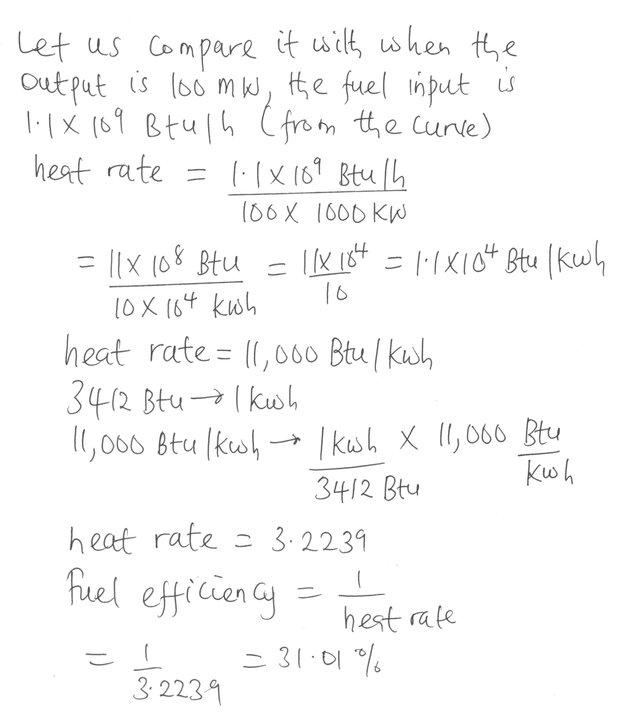 Let us compare it with when the
output is 100 MW, the fuel input is
1.1 × 10⁹ Btu/h (from the curve)
heat rate = 1.1 × 10⁹ Btu/h / 100 × 1000 KW
= 11 × 10⁸ Btu / 10 × 10⁴ kwh = 11 × 10⁴ / 10 = 1.1 × 10⁴ Btu/kwh
heat rate = 11,000 Btu/kwh
3412 Btu → 1 kwh
11,000 Btu/kwh → 1 kwh / 3412 Btu × 11,000 Btu / kwh
heat rate = 3.2239
fuel efficiency = 1 / heat rate
= 1 / 3.2239 = 31.01 %